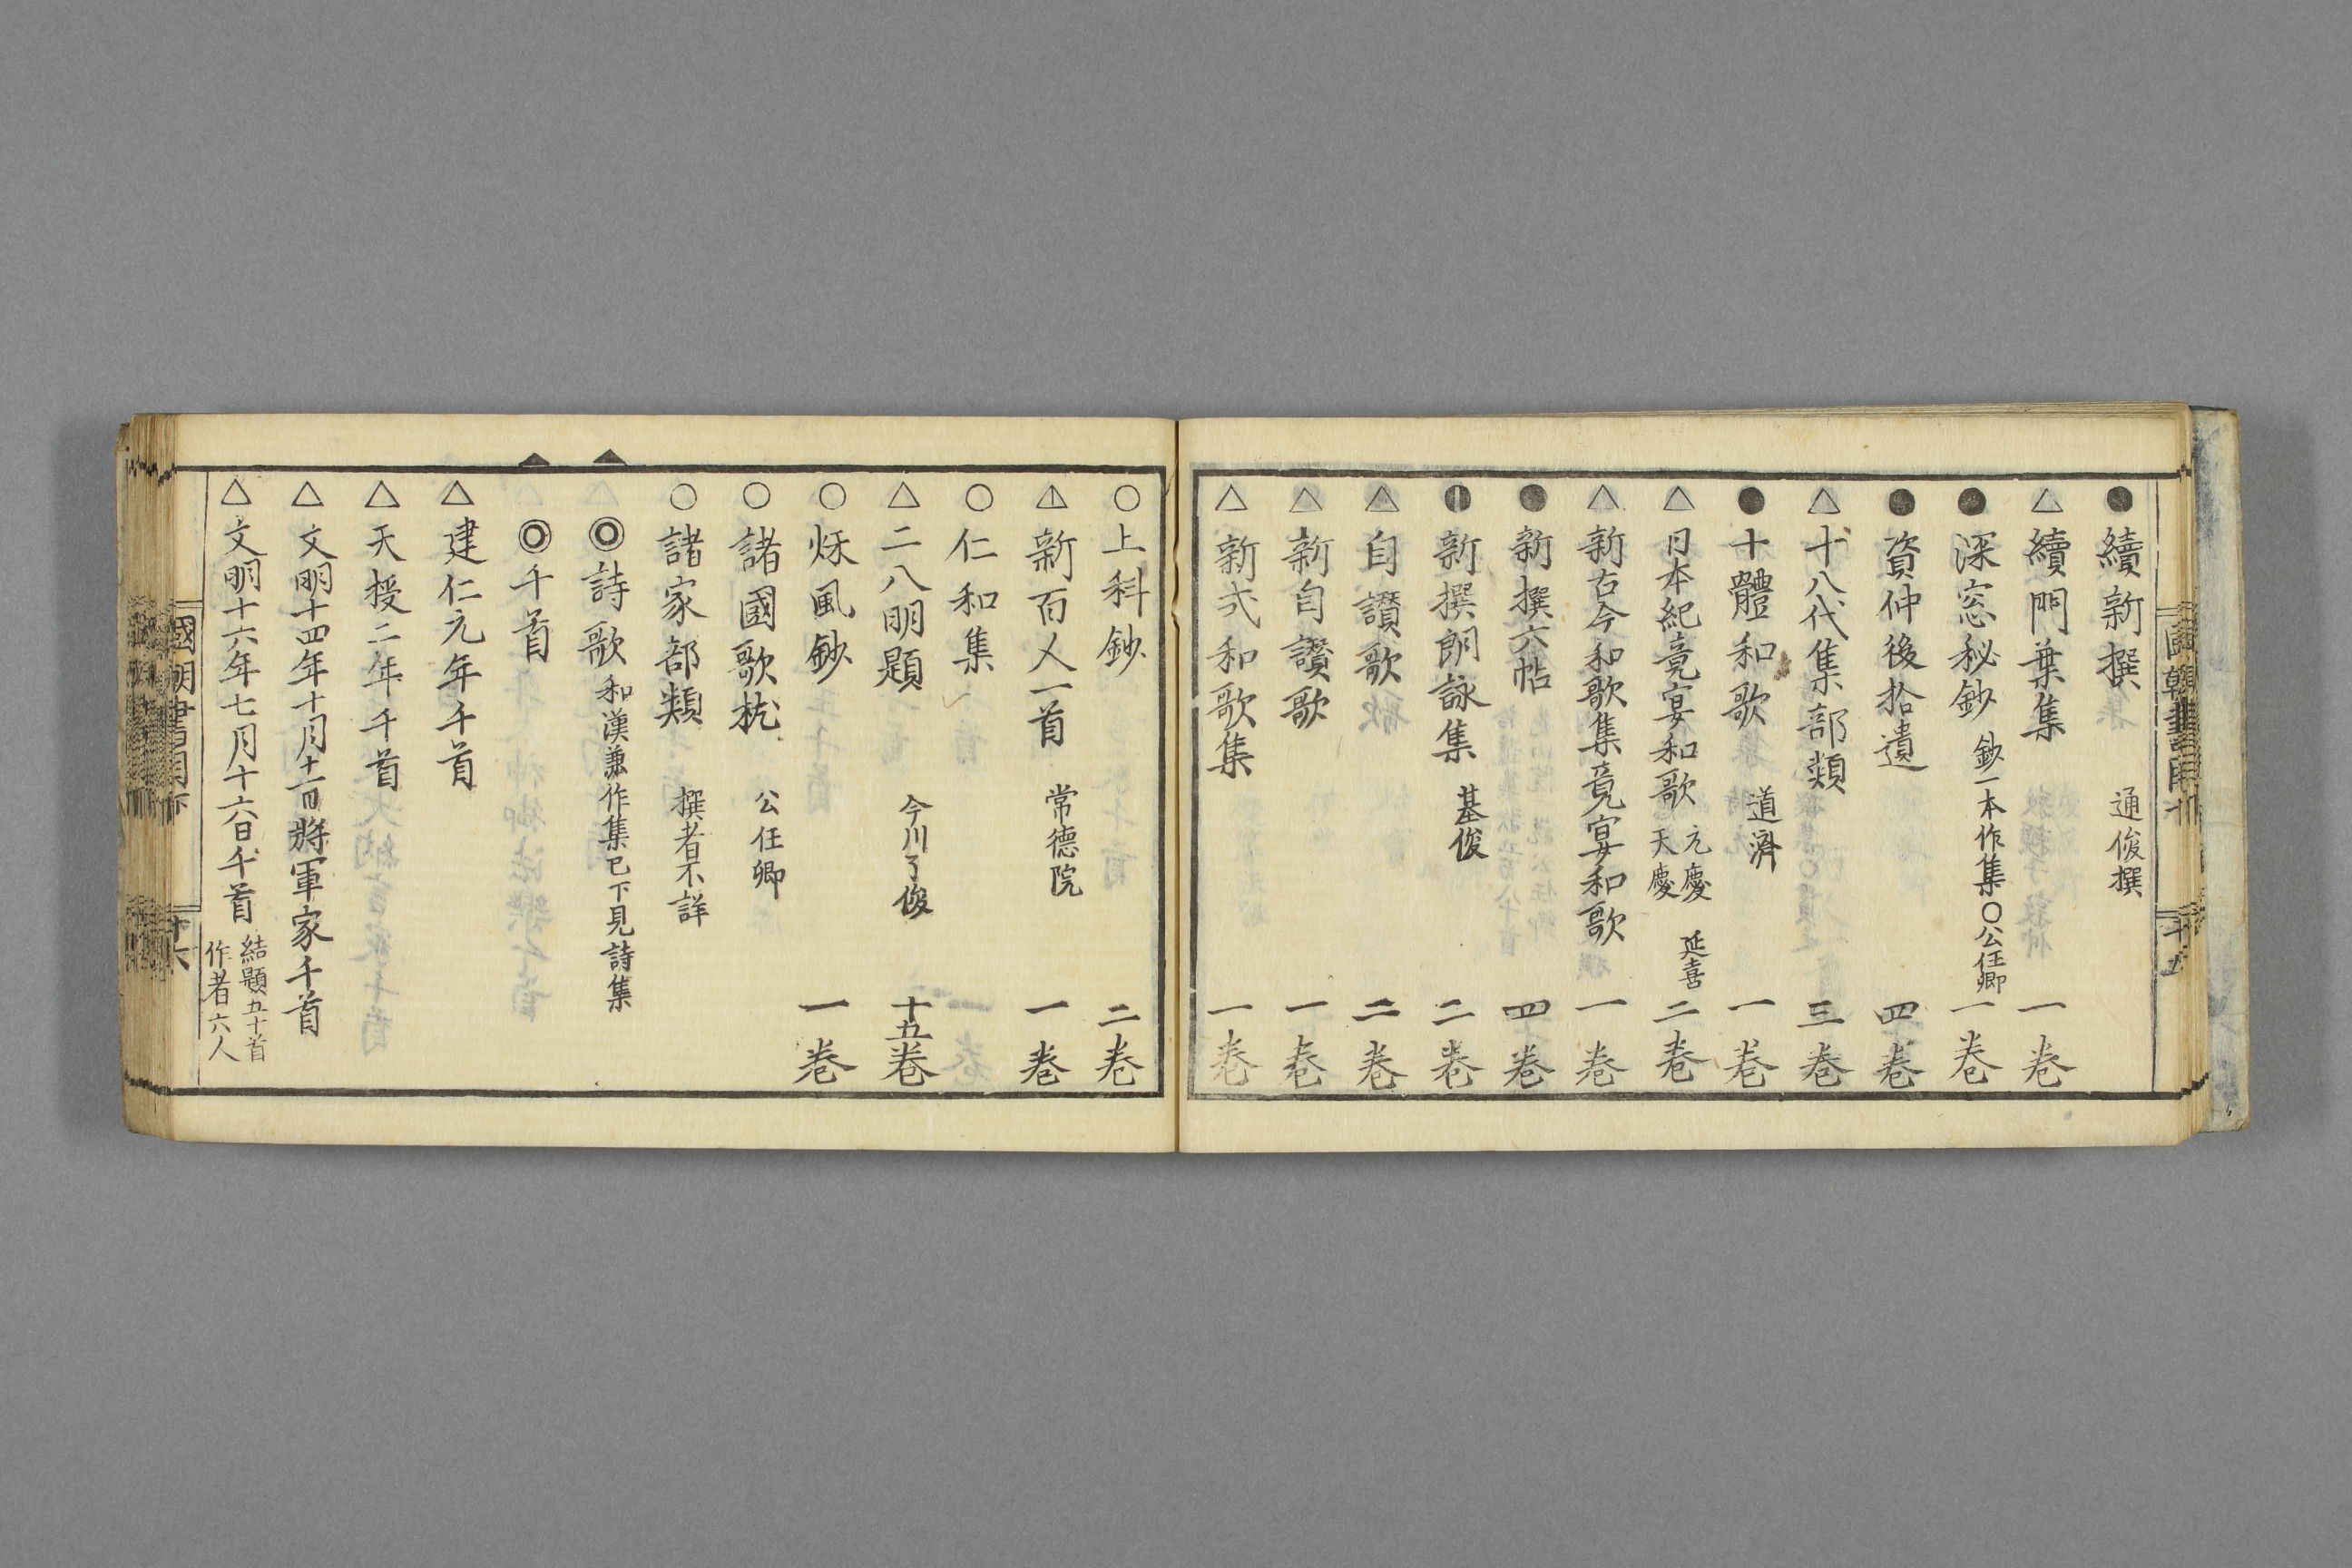 ●續新撰 通俊撰
△續門葉集 一卷
●深窓秘鈔 鈔一本作集○公任卿 一卷
●資仲後拾遺 四卷
△十八代集部類 三卷
●十體和歌 道濟 一卷
△日本紀竟宴和歌 元慶 天慶 延喜 二卷
△新古今和歌集竟宴和歌 一卷
●新撰六帖 四卷
新撰朗詠集 基俊 二卷
△自讚歌 二卷
△新自讚歌 一卷
△新式和歌集 一卷
○上科鈔 二卷
新百人一首 常德院 一卷
○仁和集
△二八明題 今川了俊 十五卷
○烁風鈔 一卷
○諸國歌枕 公任卿
○諸家部類 撰者不詳
◎詩歌 和漢兼作集已下見詩集
◎千首
△建仁元年千首
△天授二年千首
△文明十四年十月十一日將軍家千首
△文明十六年七月十六日千首 結題五十首 作者六人